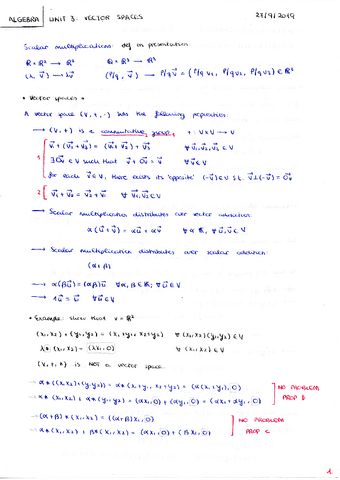 ALGEBRA UNIT 3: VECTOR SPACES 27/9/2019
Scalar multiplications: def in presentation.
R × R² → R² Q × R³ → R³
(λ, v⃗) → λv⃗ (P/q, v⃗) → P/q v⃗ = (P/q v₁, P/q v₂, P/q v₃) ∈ R³
• Vector spaces •
A vector space (V, +, ·) has the following properties:
→ (V, +) is a commutative group + : V×V → V
1 v⃗₁ + (v⃗₂ + v⃗₃) = (v⃗₁ + v⃗₂) + v⃗₃ ∀ v⃗₁, v⃗₂, v⃗₃ ∈ V
∃ 0⃗v ∈ V such that v⃗ + 0⃗v = v⃗ ∀ v⃗ ∈ V
for each v⃗ ∈ V, there exists its 'opposite' (-v⃗) ∈ V s.t. v⃗ + (-v⃗) = 0⃗v
2 v⃗₁ + v⃗₂ = v⃗₂ + v⃗₁ ∀ v⃗₁, v⃗₂ ∈ V
→ Scalar multiplication distributes over vector addition:
α(u⃗ + v⃗) = αu⃗ + αv⃗ ∀ α ∈ R, ∀ u⃗, v⃗ ∈ V
→ Scalar multiplication distributes over scalar addition:
(α + β)
→ α(βu⃗) = (αβ)u⃗ ∀ α, β ∈ R; ∀ u⃗ ∈ V
→ 1u⃗ = u⃗ ∀ u⃗ ∈ V
• Example: show that V = R²
(x₁, x₂) + (y₁, y₂) = (x₁ + y₁, x₂ + y₂) ∀ (x₁, x₂), (y₁, y₂) ∈ V
λ * (x₁, x₂) = (λx₁, 0) ∀ (x₁, x₂) ∈ V
(V, +, *) is NOT a vector space
→ α * ((x₁, x₂) + (y₁, y₂)) = α * (x₁ + y₁, x₂ + y₂) = (α(x₁ + y₁), 0)
→ α * (x₁, x₂) + α * (y₁, y₂) = (αx₁, 0) + (αy₁, 0) = (αx₁ + αy₁, 0)
NO PROBLEM
PROP B
→ (α + β) * (x₁, x₂) = ((α + β)x₁, 0)
→ α * (x₁, x₂) + β * (x₁, x₂) = (αx₁, 0) + (βx₁, 0)
NO PROBLEM
PROP C
1